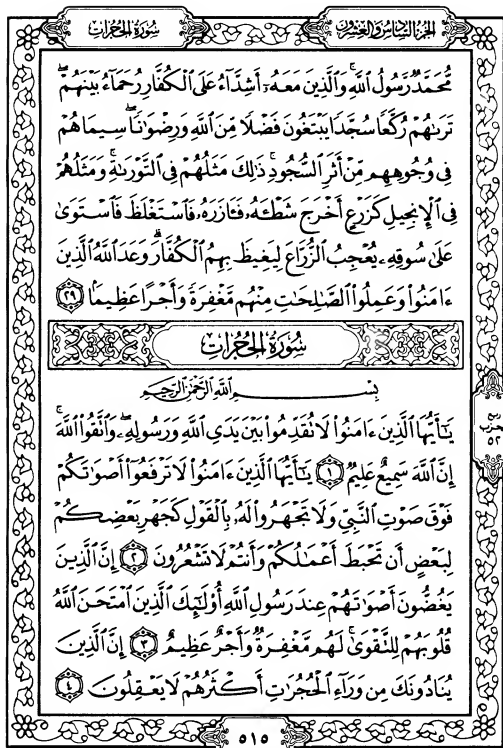 الجزء السادس والعشرون
سورة الحجرات
مُّحَمَّدٌ رَّسُولُ ٱللَّهِ ۚ وَٱلَّذِينَ مَعَهُۥٓ أَشِدَّآءُ عَلَى ٱلْكُفَّارِ رُحَمَآءُ بَيْنَهُمْ ۖ
تَرَىٰهُمْ رُكَّعًا سُجَّدًا يَبْتَغُونَ فَضْلًا مِّنَ ٱللَّهِ وَرِضْوَٰنًا ۖ سِيمَاهُمْ
فِى وُجُوهِهِم مِّنْ أَثَرِ ٱلسُّجُودِ ۚ ذَٰلِكَ مَثَلُهُمْ فِى ٱلتَّوْرَىٰةِ ۚ وَمَثَلُهُمْ
فِى ٱلْإِنجِيلِ كَزَرْعٍ أَخْرَجَ شَطْـَٔهُۥ فَـَٔازَرَهُۥ فَٱسْتَغْلَظَ فَٱسْتَوَىٰ
عَلَىٰ سُوقِهِۦ يُعْجِبُ ٱلزُّرَّاعَ لِيَغِيظَ بِهِمُ ٱلْكُفَّارَ ۗ وَعَدَ ٱللَّهُ ٱلَّذِينَ
ءَامَنُوا۟ وَعَمِلُوا۟ ٱلصَّٰلِحَٰتِ مِنْهُم مَّغْفِرَةً وَأَجْرًا عَظِيمًۢا ٢٩
سُورَةُ الحُجُرَاتِ
بِسْمِ ٱللَّهِ ٱلرَّحْمَٰنِ ٱلرَّحِيمِ
يَٰٓأَيُّهَا ٱلَّذِينَ ءَامَنُوا۟ لَا تُقَدِّمُوا۟ بَيْنَ يَدَىِ ٱللَّهِ وَرَسُولِهِۦ ۖ وَٱتَّقُوا۟ ٱللَّهَ ۚ
إِنَّ ٱللَّهَ سَمِيعٌ عَلِيمٌ ١ يَٰٓأَيُّهَا ٱلَّذِينَ ءَامَنُوا۟ لَا تَرْفَعُوٓا۟ أَصْوَٰتَكُمْ
فَوْقَ صَوْتِ ٱلنَّبِىِّ وَلَا تَجْهَرُوا۟ لَهُۥ بِٱلْقَوْلِ كَجَهْرِ بَعْضِكُمْ
لِبَعْضٍ أَن تَحْبَطَ أَعْمَٰلُكُمْ وَأَنتُمْ لَا تَشْعُرُونَ ٢ إِنَّ ٱلَّذِينَ
يَغُضُّونَ أَصْوَٰتَهُمْ عِندَ رَسُولِ ٱللَّهِ أُو۟لَٰٓئِكَ ٱلَّذِينَ ٱمْتَحَنَ ٱللَّهُ
قُلُوبَهُمْ لِلتَّقْوَىٰ ۚ لَهُم مَّغْفِرَةٌ وَأَجْرٌ عَظِيمٌ ٣ إِنَّ ٱلَّذِينَ
يُنَادُونَكَ مِن وَرَآءِ ٱلْحُجُرَٰتِ أَكْثَرُهُمْ لَا يَعْقِلُونَ ٤
٥٢
٥١٥